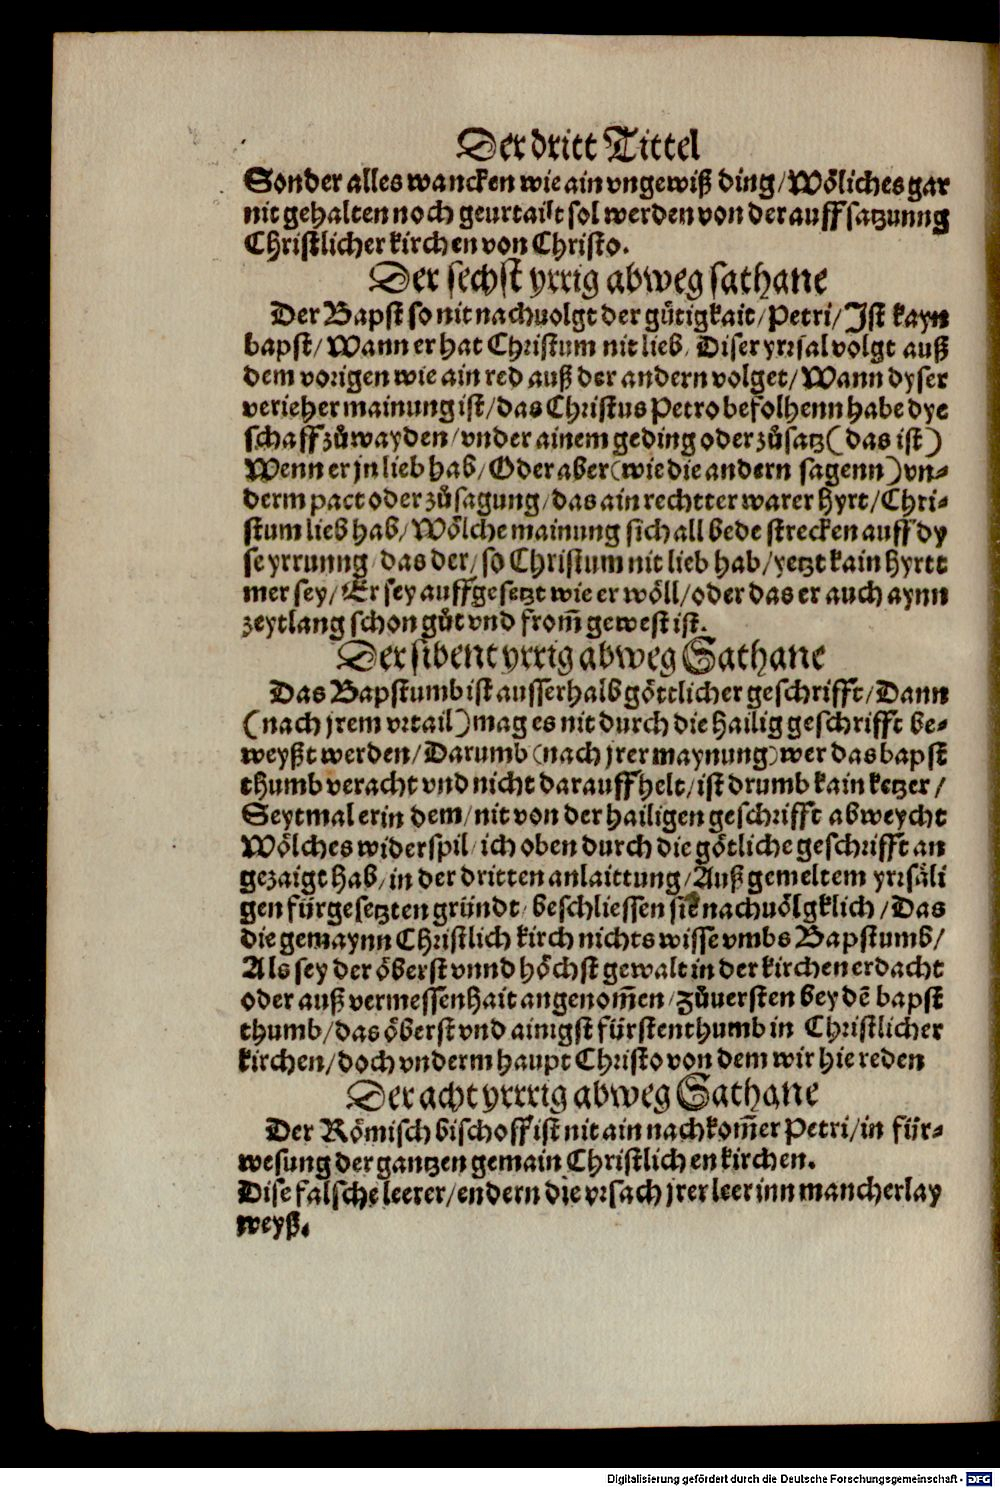 Der dritt Tittel
Sonder alles wancken wie ain vngewiß ding/Wöliches gar
nit gehalten noch geurtailt sol werden von der auffsatzunng
Christlicher kirchen von Christo.
Der sechst yrrig abweg sathane
Der Bapst so nit nachuolgt der gůtigkait/Petri/Ist kayn
bapst/Wann er hat Christum nit lieb/Diser yrrsal volgt auß
dem vorigen wie ain red auß der andern volget/Wann dyser
verieher mainung ist/das Christus Petro befolhenn habe dye
schaff zůwayden/vnder ainem geding oder zůsatz(das ist)
Wenn er jn lieb hab/Oder aber(wie die andern sagenn)vn-
derm pact oder zůsagung/das ain rechtter warer hyrt/Chri-
stum lieb hab/Wölche mainung sich all bede strecken auff dy
se yrrunng/das der/so Christum nit lieb hab/yetzt kain hyrtt
mer sey/Er sey auffgesetzt wie er wöll/oder das er auch aynn
zeytlang schon gůt vnd from̃ gewest ist.
Der sibent yrrig abweg Sathane
Das Bapstumb ist ausserhalb göttlicher geschrifft/Dann
(nach jrem vrtail)mag es nit durch die hailig geschrifft be-
weyßt werden/Darumb(nach jrer maynung)wer das bapst
thumb veracht vnd nicht darauff helt/ist drumb kain ketzer/
Seytmal er in dem/nit von der hailigen geschrifft abweycht
Wölches widerspil/ich oben durch die götliche geschrifft an
gezaigt hab/in der dritten anlaittung/Auß gemeltem yrrsäli
gen fürgesetzten gründt/beschliessen sie nachuölgklich/Das
die gemaynn Christlich kirch nichts wisse vmbs Bapstumb/
Als sey der öberst vnnd höchst gewalt in der kirchen erdacht
oder auß vermessenhait angenom̃en/zůuersten bey dẽ bapst
thumb/das öberst vnd ainigst fürstenthumb in Christlicher
kirchen/doch vnderm haupt Christo von dem wir hie reden
Der acht yrrrig abweg Sathane
Der Römisch bischoff ist nit ain nachkom̃er Petri/in für-
wesung der gantzen gemain Christlichen kirchen.
Dise falsche leerer/endern die vrsach jrer leer inn mancherlay
weyß.
Digitalisierung gefördert durch die Deutsche Forschungsgemeinschaft - DFG